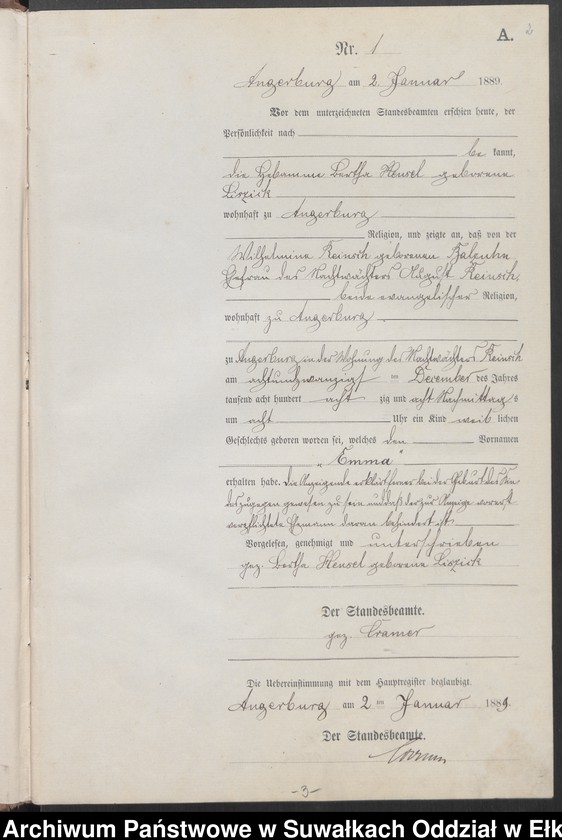 A.
2
Nr. 1
Angerburg am 2. Januar 1889.
Vor dem unterzeichneten Standesbeamten erschien heute, der
Persönlichkeit nach
be kannt,
die Hebamme Bertha Hensel geborene
Liszick
wohnhaft zu Angerburg
Religion, und zeigte an, daß von der
Wilhelmine Reinsch geborenen
Ehefrau des Nachtwächters August Reinsch,
beide evangelischer Religion,
wohnhaft zu Angerburg
zu Angerburg in der Wohnung des Nachtwächters Reinsch
am achtundzwanzigst en December des Jahres
tausend acht hundert acht zig und acht Nachmittags
um acht Uhr ein Kind weib lichen
Geschlechts geboren worden sei, welches den Vornamen
„Emma“
erhalten habe. Die Anzeigende erklärt ferner bei der Geburt des Kin
des zugegen gewesen zu sein und daß der zur Anzeige vorerst
verpflichtete Ehemann daran behindert ist
Vorgelesen, genehmigt und unterschrieben
gez. Bertha Hensel geborene Liszick
Der Standesbeamte.
gez. Cramer
Die Uebereinstimmung mit dem Hauptregister beglaubigt.
Angerburg am 2 ten Januar 1889.
Der Standesbeamte.
-3-
Archiwum Państwowe w Suwałkach Oddział w Ełk